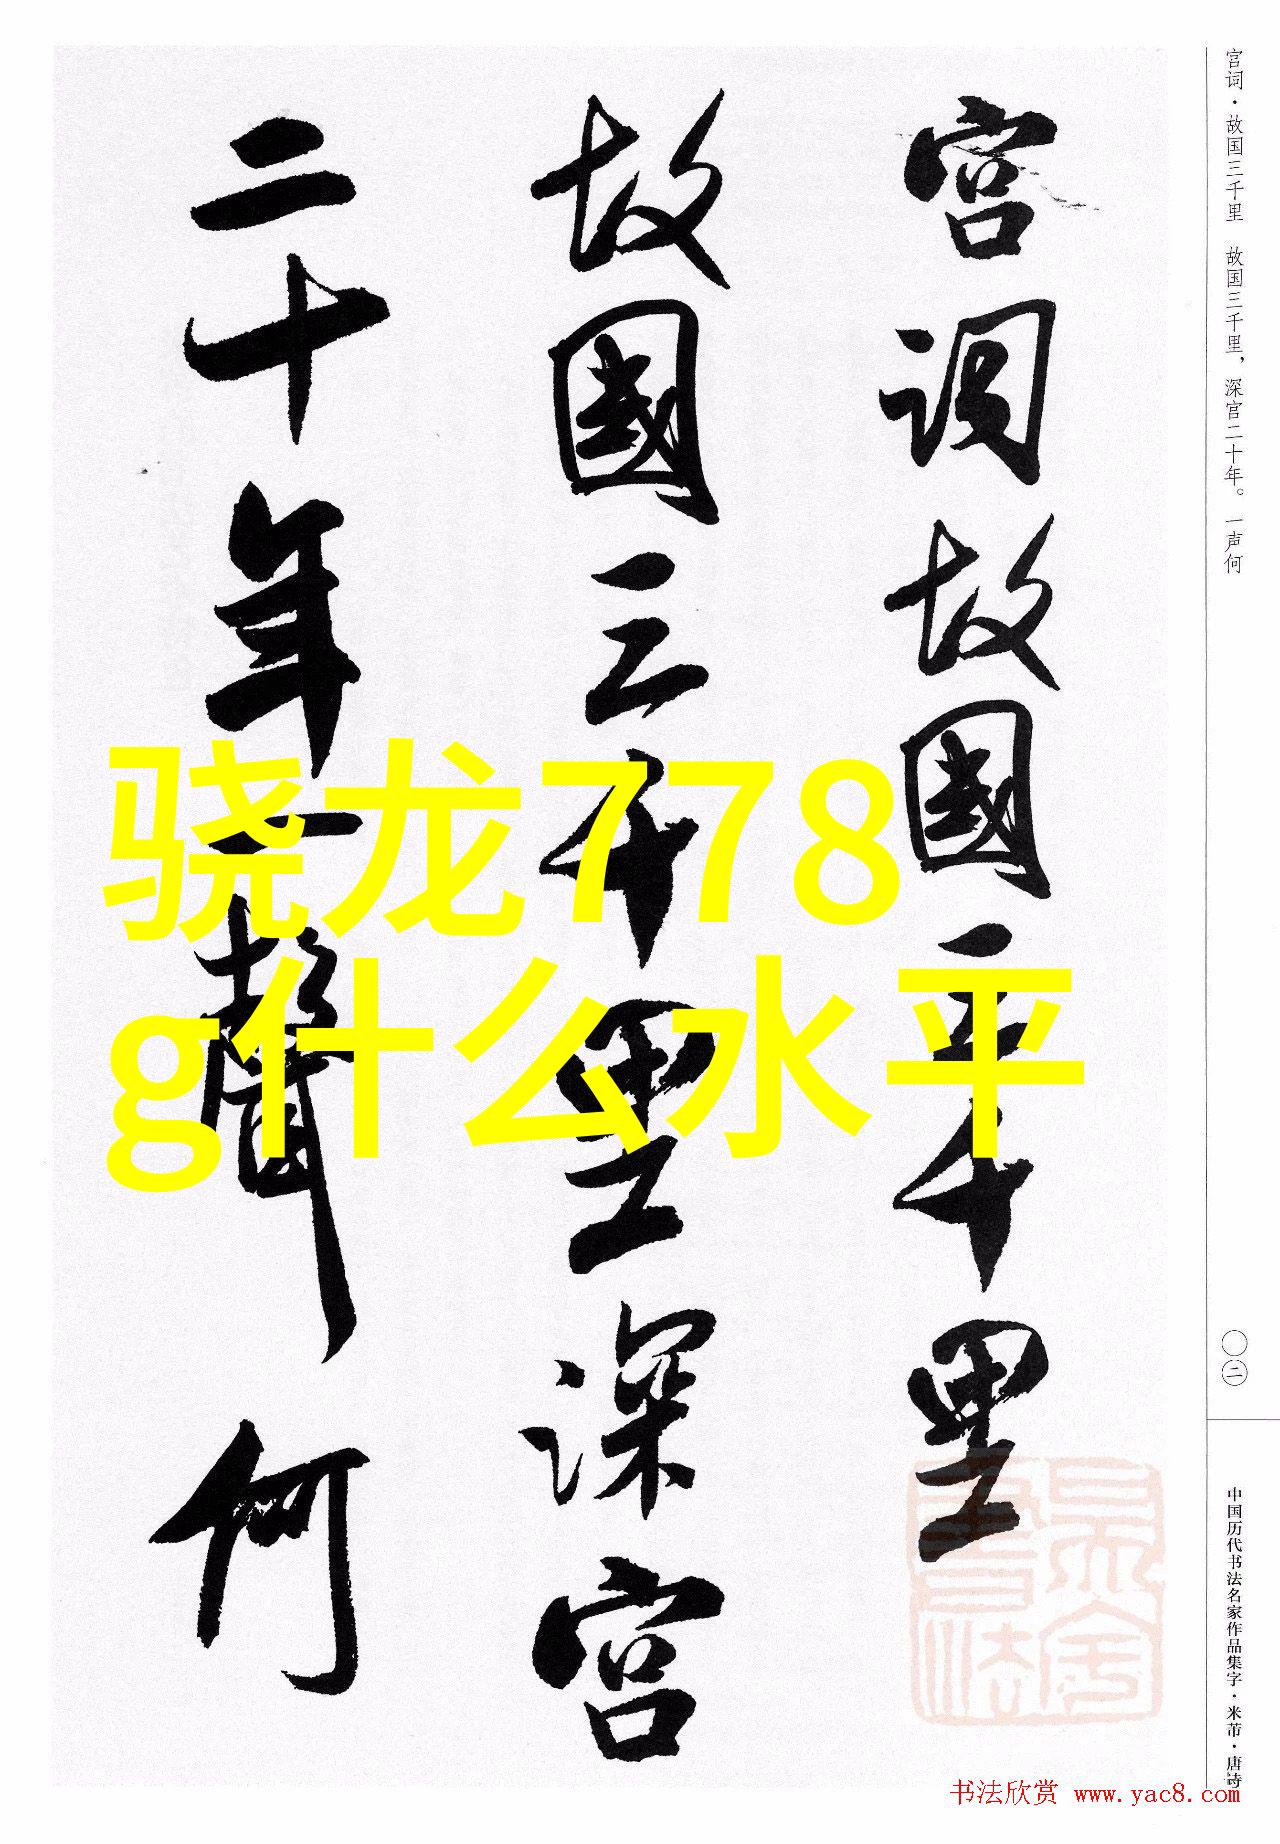 宫词·故国三千里　故国三千里，深宫二十年。一声何
宫词故國三千里
故國三千里深宫
二十年一聲何
骁龙778
g什么水平
〇二
中国历代书法名家作品集字·米芾·唐诗
书法欣赏 www.yac8.com